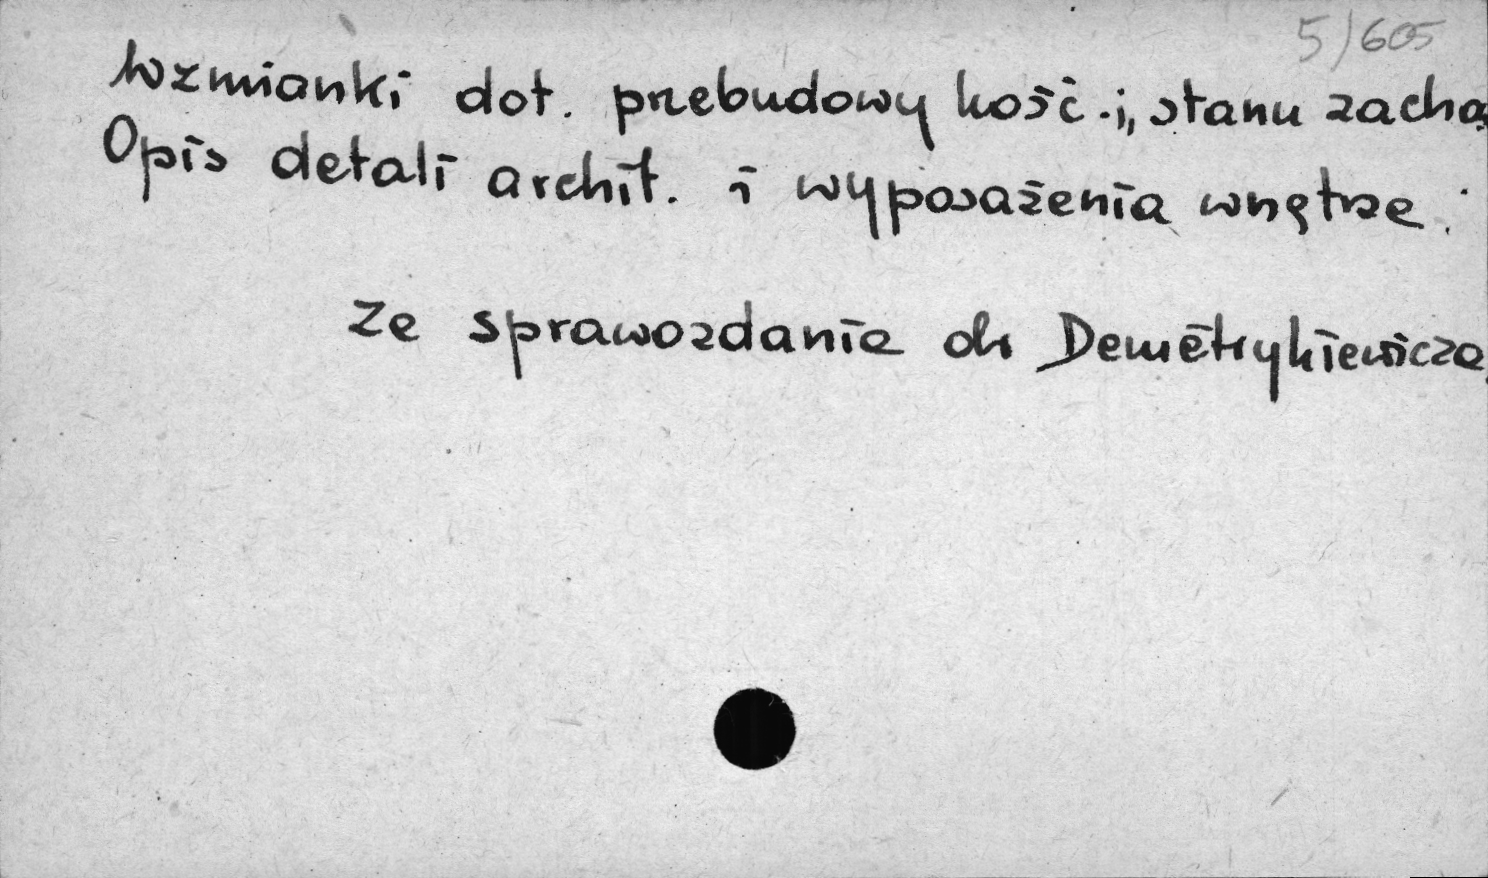 5/605
Wzmianki dot. przebudowy kość. i, stanu zacho
Opis detali archit. i wyposażenia wnętrza.
Ze sprawozdania dr Demetrykiewicza